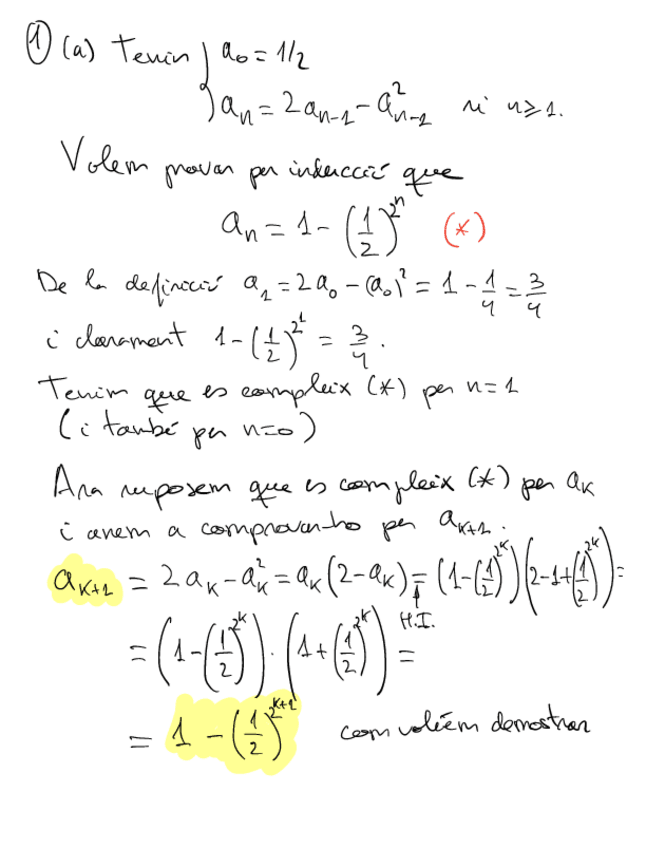 ① (a) Tenim { a₀ = 1/2
aₙ = 2aₙ₋₁ - a²ₙ₋₁ si n ≥ 1.
Volem provar per inducció que
aₙ = 1 - (1/2)^(2^n) (*)
De la definició a₁ = 2a₀ - (a₀)² = 1 - 1/4 = 3/4
i clarament 1 - (1/2)^(2^1) = 3/4.
Tenim que es compleix (*) per n=1
(i també per n=0)
Ara suposem que es compleix (*) per aₖ
i anem a comprovar-ho per aₖ₊₁.
aₖ₊₁ = 2aₖ - a²ₖ = aₖ(2 - aₖ) = (1 - (1/2)^(2^k)) (2 - 1 + (1/2)^(2^k)) =
↑ H.I.
= (1 - (1/2)^(2^k)) · (1 + (1/2)^(2^k)) =
= 1 - (1/2)^(2^(k+1)) com volíem demostrar